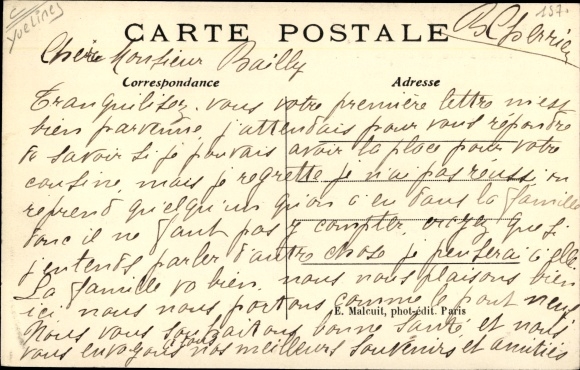 Yvelines
137.
CARTE POSTALE
Chère Monsieur Bailly
Correspondance
Adresse
Tranquilisez-vous votre première lettre m'est
bien parvenue, j'attendais pour vous répondre
de savoir si je pouvais avoir la place pour votre
cousine, mais je regrette je n'ai pas réussi, on
reprend quelqu'un qu'on a eu dans la famille
donc il ne faut pas y compter, croyez que si
j'entends parler d'autre chose je penserai à elle
La famille va bien. nous nous plaisons bien
ici, nous nous portons comme le pont neuf
E. Malcuit, phot-édit. Paris
Nous vous souhaitons bonne santé, et nous
vous envoyons à tous nos meilleurs souvenirs et amitiés